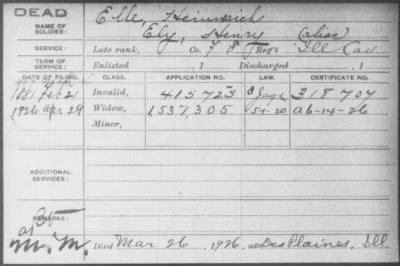 DEAD
NAME OF SOLDIER: Elle, Heinrich
Ely, Henry alias
SERVICE: Late rank, Co. F 8 Reg't Ill Cav
TERM OF SERVICE: Enlisted , 1 Discharged , 1
DATE OF FILING. CLASS. APPLICATION NO. LAW. CERTIFICATE NO.
1881 Feb 21 Invalid, 415723 318704
1926 Apr 29 Widow, 1,537,305 5-1-20 a 6-14-26
Minor,
ADDITIONAL SERVICES:
REMARKS:
M.M. Died Mar 26, 1926, at Des Plaines, Ill.